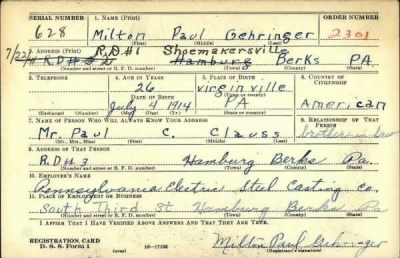 SERIAL NUMBER 1. NAME (Print) ORDER NUMBER
628 Milton Paul Gehringer 2301
(First) (Middle) (Last)
R.D#1 Shoemakersville
2. ADDRESS (Print)
R.D#3 Hamburg Berks PA.
(Number and street or R. F. D. number) (Town) (County) (State)
3. TELEPHONE 4. AGE IN YEARS 5. PLACE OF BIRTH 6. COUNTRY OF CITIZENSHIP
26 Virginville
DATE OF BIRTH
July 4 1914 PA American
(Exchange) (Number) (Mo.) (Day) (Yr.) (State or country)
7. NAME OF PERSON WHO WILL ALWAYS KNOW YOUR ADDRESS 8. RELATIONSHIP OF THAT PERSON
Mr. Paul C. Clauss brother-in-law
(Mr., Mrs., Miss) (First) (Middle) (Last)
9. ADDRESS OF THAT PERSON
R.D#3 Hamburg Berks Pa.
(Number and street or R. F. D. number) (Town) (County) (State)
10. EMPLOYER'S NAME
Pennsylvania Electric Steel Casting Co.
11. PLACE OF EMPLOYMENT OR BUSINESS
South Third St. Hamburg Berks Pa
(Number and street or R. F. D. number) (Town) (County) (State)
I AFFIRM THAT I HAVE VERIFIED ABOVE ANSWERS AND THAT THEY ARE TRUE.
REGISTRATION CARD
D. S. S. Form 1 (over) 16-17105 Milton Paul Gehringer
(Registrant's signature)